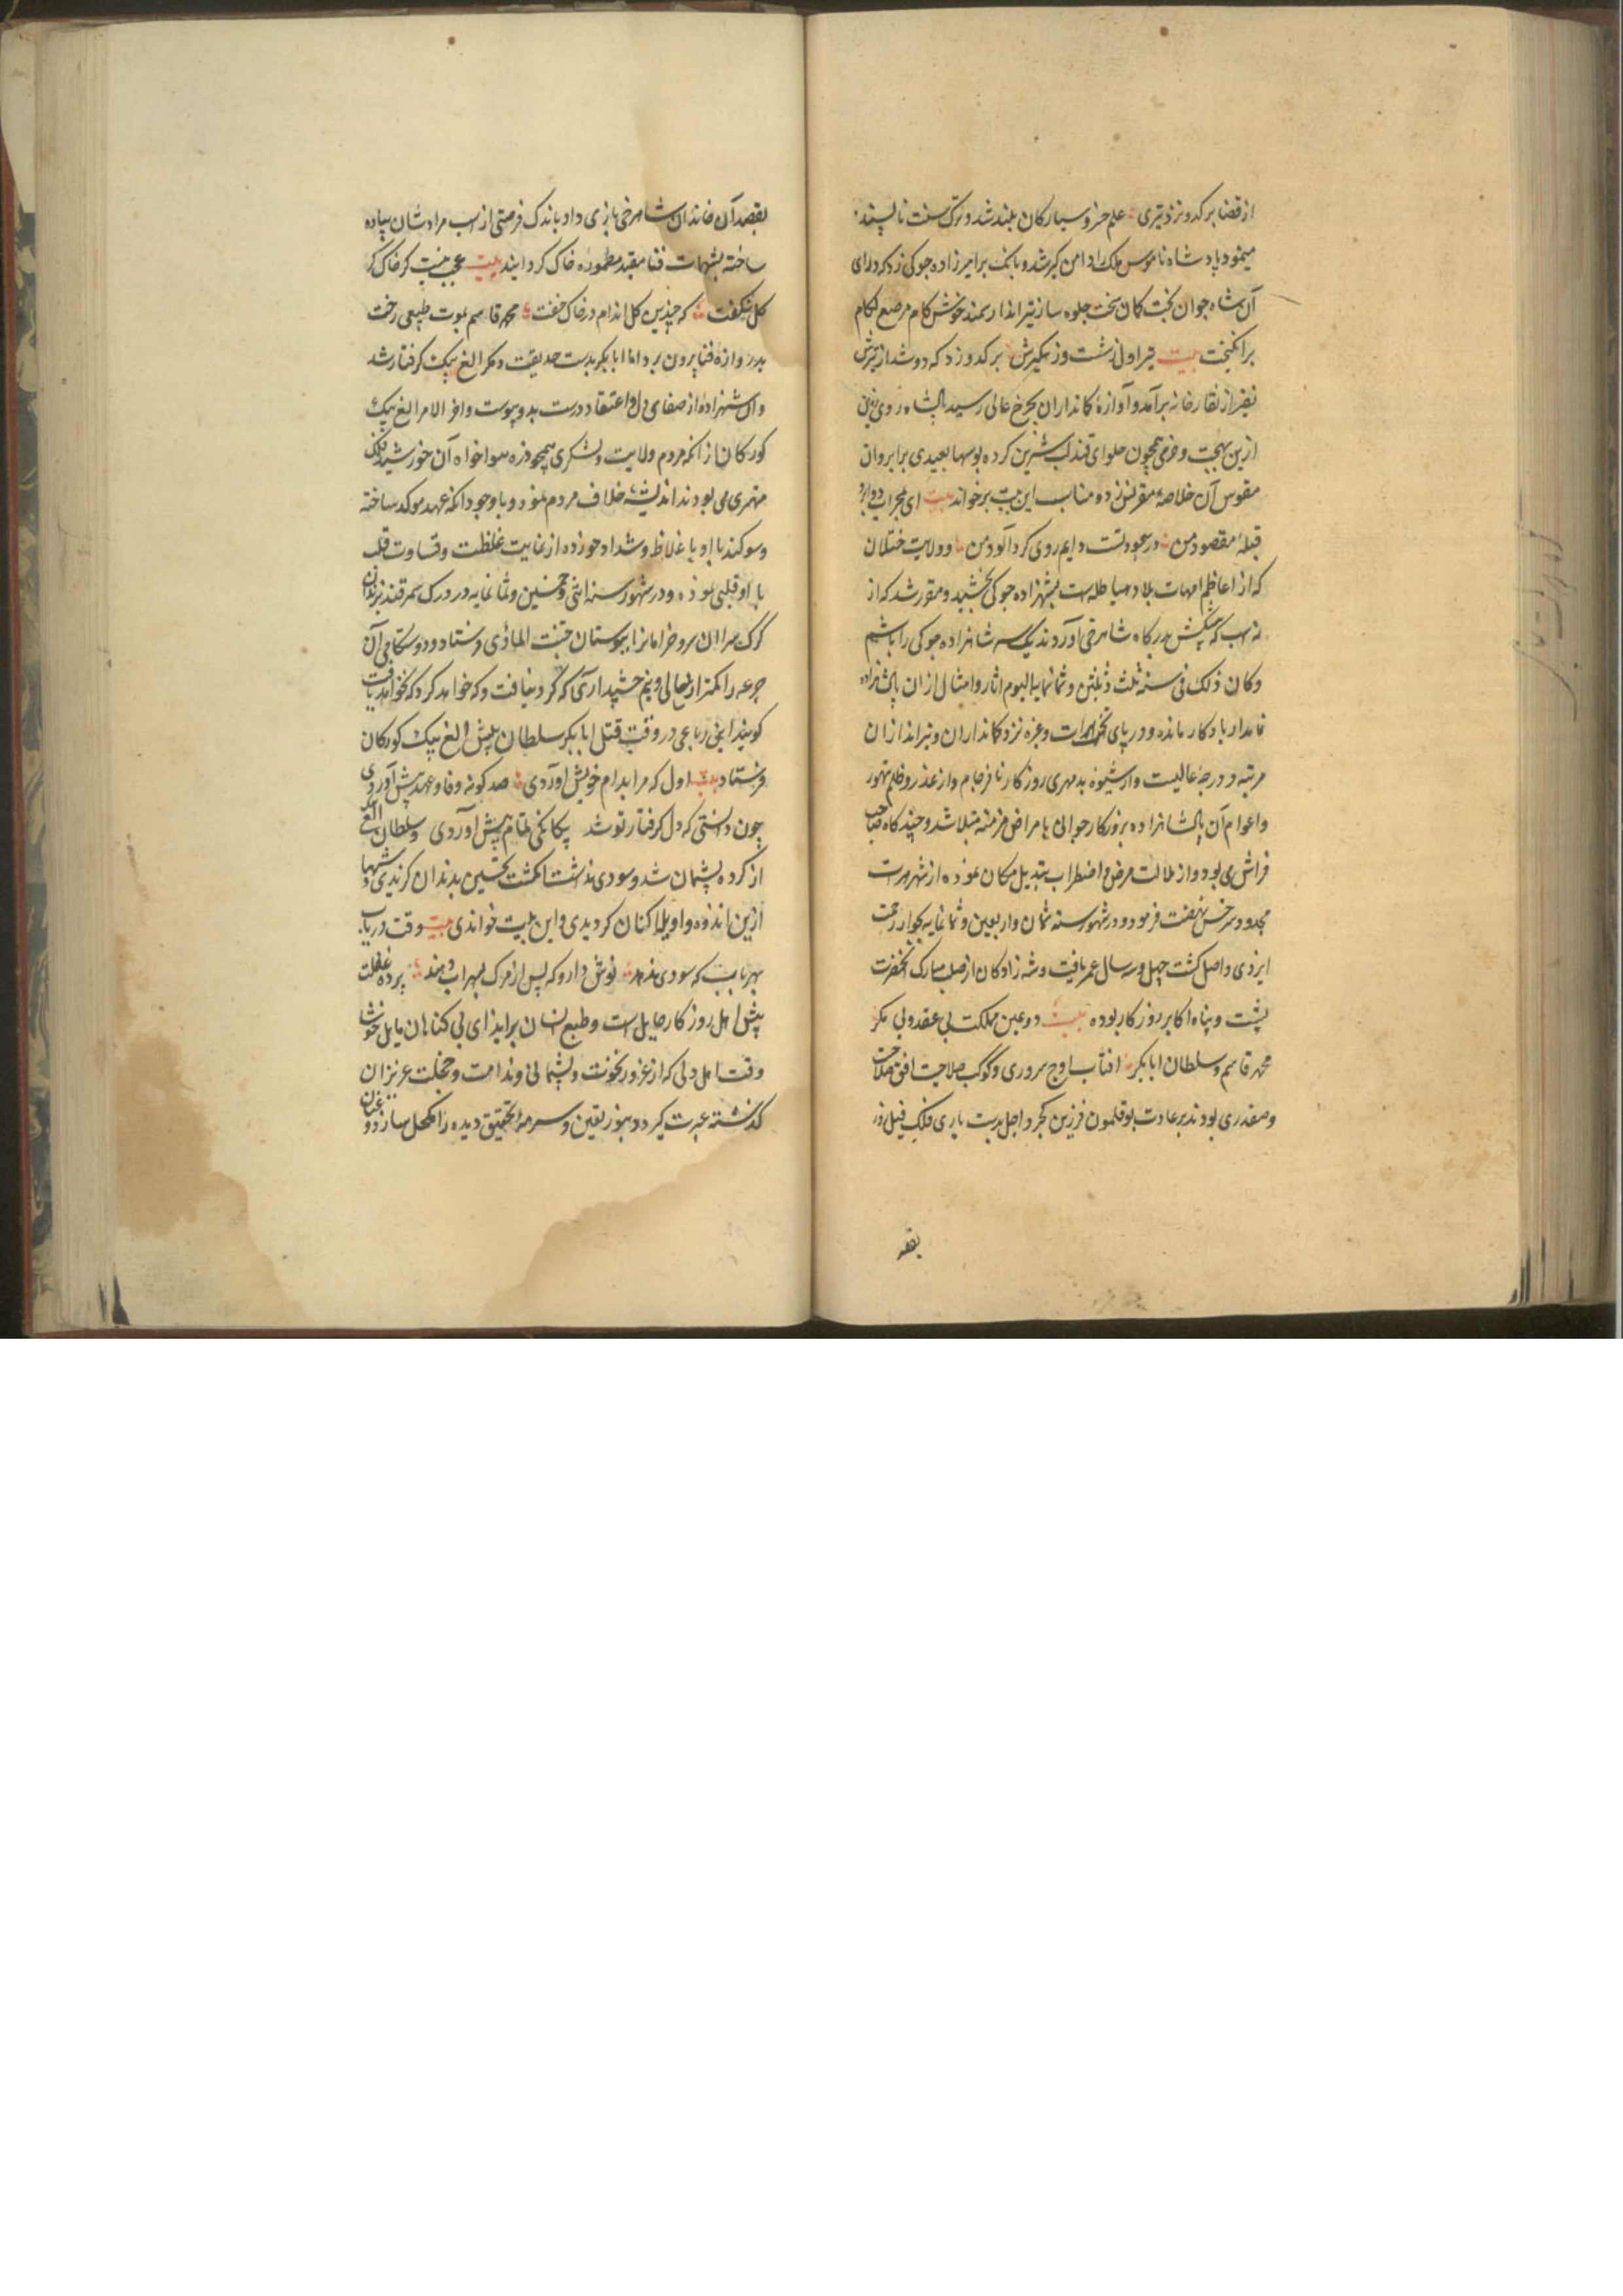 از قضا بر کدو نزد تیری علم خسرو سیارکان بلند شد و ترک سنت ناپسند
مینمود پادشاه ناموس ملک دامن کیر شد و بانک بر امیرزاده جوکی زد که دارای
آن شاه جوان بخت کمان سخت جلوه ساز تیر انداز سمند خوش کام مرصع لکام
بر انکیخت بیت تیر اول ز شست وز کیرش بر کدو زد که دو شد از تیرش
نفیر از نقاره خانه برآمد و آوازه کمانداران بچرخ عالی رسید پادشاه روی زمین
ازین بهجت و خرمی همچون حلوای قند لب شیرین کرده بوسها بعیدی بر ابروان
مقوس آن خلاصه مقرنس زده مناسب این بیت بر خواند بیت ای محراب دو ابرو
قبله مقصود من در سجودتست دایم روی کرد آلود من و ولایت ختلان
که از اعاظم امهات بلاد هیاطله است بشهزاده جوکی بخشید و مقرر شد که از
نه اسب که پیشکش بدرکاه شاهرخی آوردند یک سر شاهزاده جوکی را باشد
و کان ذلک فی سنه ثلث و ثلثین و ثمانمایه الیوم آثار و امثال از ان پادشاهزاده
نامدار یادکار مانده و در پای تخت هرات و غیره نزد کمانداران و تیراندازان
مرتبه و درجه عالیست و از شیوه بدمهری روزکار نافرجام و از غدر و ظلم شهور
و اعوام آن پادشاهزاده بروزکار جوانی بامراض مزمنه مبتلا شد و چند کاه صاحب
فراش می بود و از ملالت مرض و اضطراب تبدیل مکان نموده از شهر هرات
بحدود سرخس نهضت فرمود و در شهور سنه ثمان و اربعین و ثمانمایه بجوار رحمت
ایزدی واصل کشت چهل و سه سال عمر یافت و شه زادکان از صلب مبارک آنحضرت
پشت و پناه اکابر روزکار بوده بیت دو عین مملکت بی عقد و بی مکر
محمد قاسم و سلطان ابابکر افتاب اوج سروری و کوکب صلاحیت افق صلاحت
و صفدری بودند بر عادت بوقلمون فرزین کجرو اجل بدست یاری فلک فیل زور
بقصد
بقصد آن خاندان شاهرخی بازی داد باندک فرصتی از اسب مرادشان پیاده
ساخته بشهمات فنا مقید مطموره خاک کردانید بیت عجب نیست کر خاک کر
کل شکفت که چندین کل اندام در خاک خفت محمد قاسم بموت طبیعی رخت
بدر وازه فنا بیرون برد اما ابابکر بدست حدیقت و مکر الغ بیک کرفتار شد
و آن شهزاده از صفای دل و اعتقاد درست بدو پیوست و اخر الامر الغ بیک
کورکان از انکه مردم ولایت و لشکری همچو ذره هواخواه آن خورشید فلک
مهتری می بودند اندیشه خلاف مردم نمود و با وجود انکه عهد موکد ساخته
و سوکند با او باغلاظ و شداد خورده از غایت غلظت و قساوت قلب
با او قلبی نموده و در شهور سنه اثنی و خمسین و ثمانمایه در درک سمرقند بزندان
کوک سرا ان سرو خرامانرا ببوستان جنت الماوی فرستاد و دوستکامی آن
جرعه را کمتر از یکسال و نیم چشید آری که کرد نیافت و که خواهد کرد که نخواهد یافت
کویند این رباعی در وقت قتل ابابکر سلطان پیش الغ بیک کورکان
فرستاد بیت اول که مرا بدام خویش آوردی صد کونه وفا و عهد پیش آوردی
چون دانستی که دل کرفتار توشد بیکانکی تمام پیش آوردی و سلطان الغ بیک
از کرده پشیمان شد و سودی نداشت انکشت تحسین بدندان کزیدی و شبها
ازین اندوه واویلا کنان کردیدی و این بیت خواندی بیت وقت دریاب
بهر باب که سودی ندهد نوش دارو که پس از مرک بسهراب دهند پرده غفلت
پیش اهل روزکار حایل است و طبع انسان بر ایذای بی کناهان مایل خوشا
وقت اهل دلی که از غرور نخوت و پشیمانی و ندامت و خجلت عزیزان
کذشته عبرت کیرد و بنور یقین و سرمه تحقیق دیده را مکحل سازد و عنان